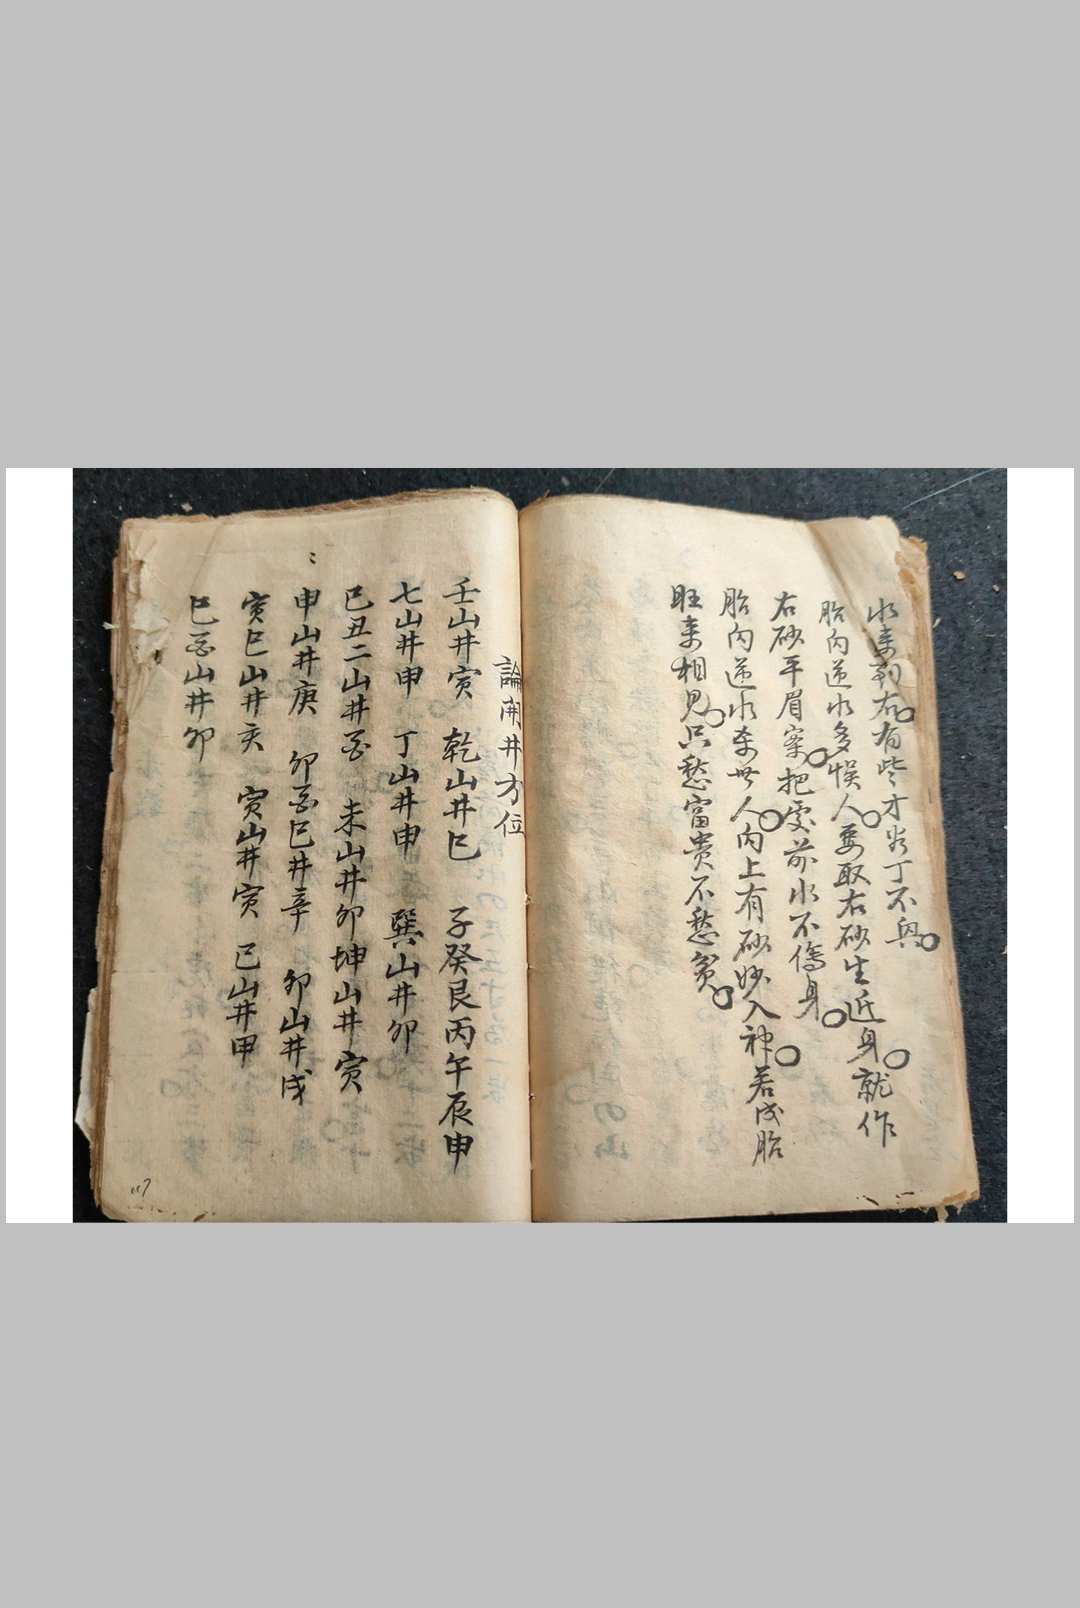 水来到右有些才発丁不與
胎内逆水多悮人要取右砂生近身就作
右砂平眉案把處前水不傷身
胎内逆水杀世人内上有砂妙入神若成胎
旺来相見只愁富贵不愁貧
論開井方位
壬山井寅 乾山井巳 子癸艮丙午辰申
七山井申 丁山井申 巽山井卯
巳丑二山井酉 未山井卯坤山井寅
申山井庚 卯酉巳井辛 卯山井戌
寅巳山井亥 寅山井寅 已山井甲
巳酉山井卯
117